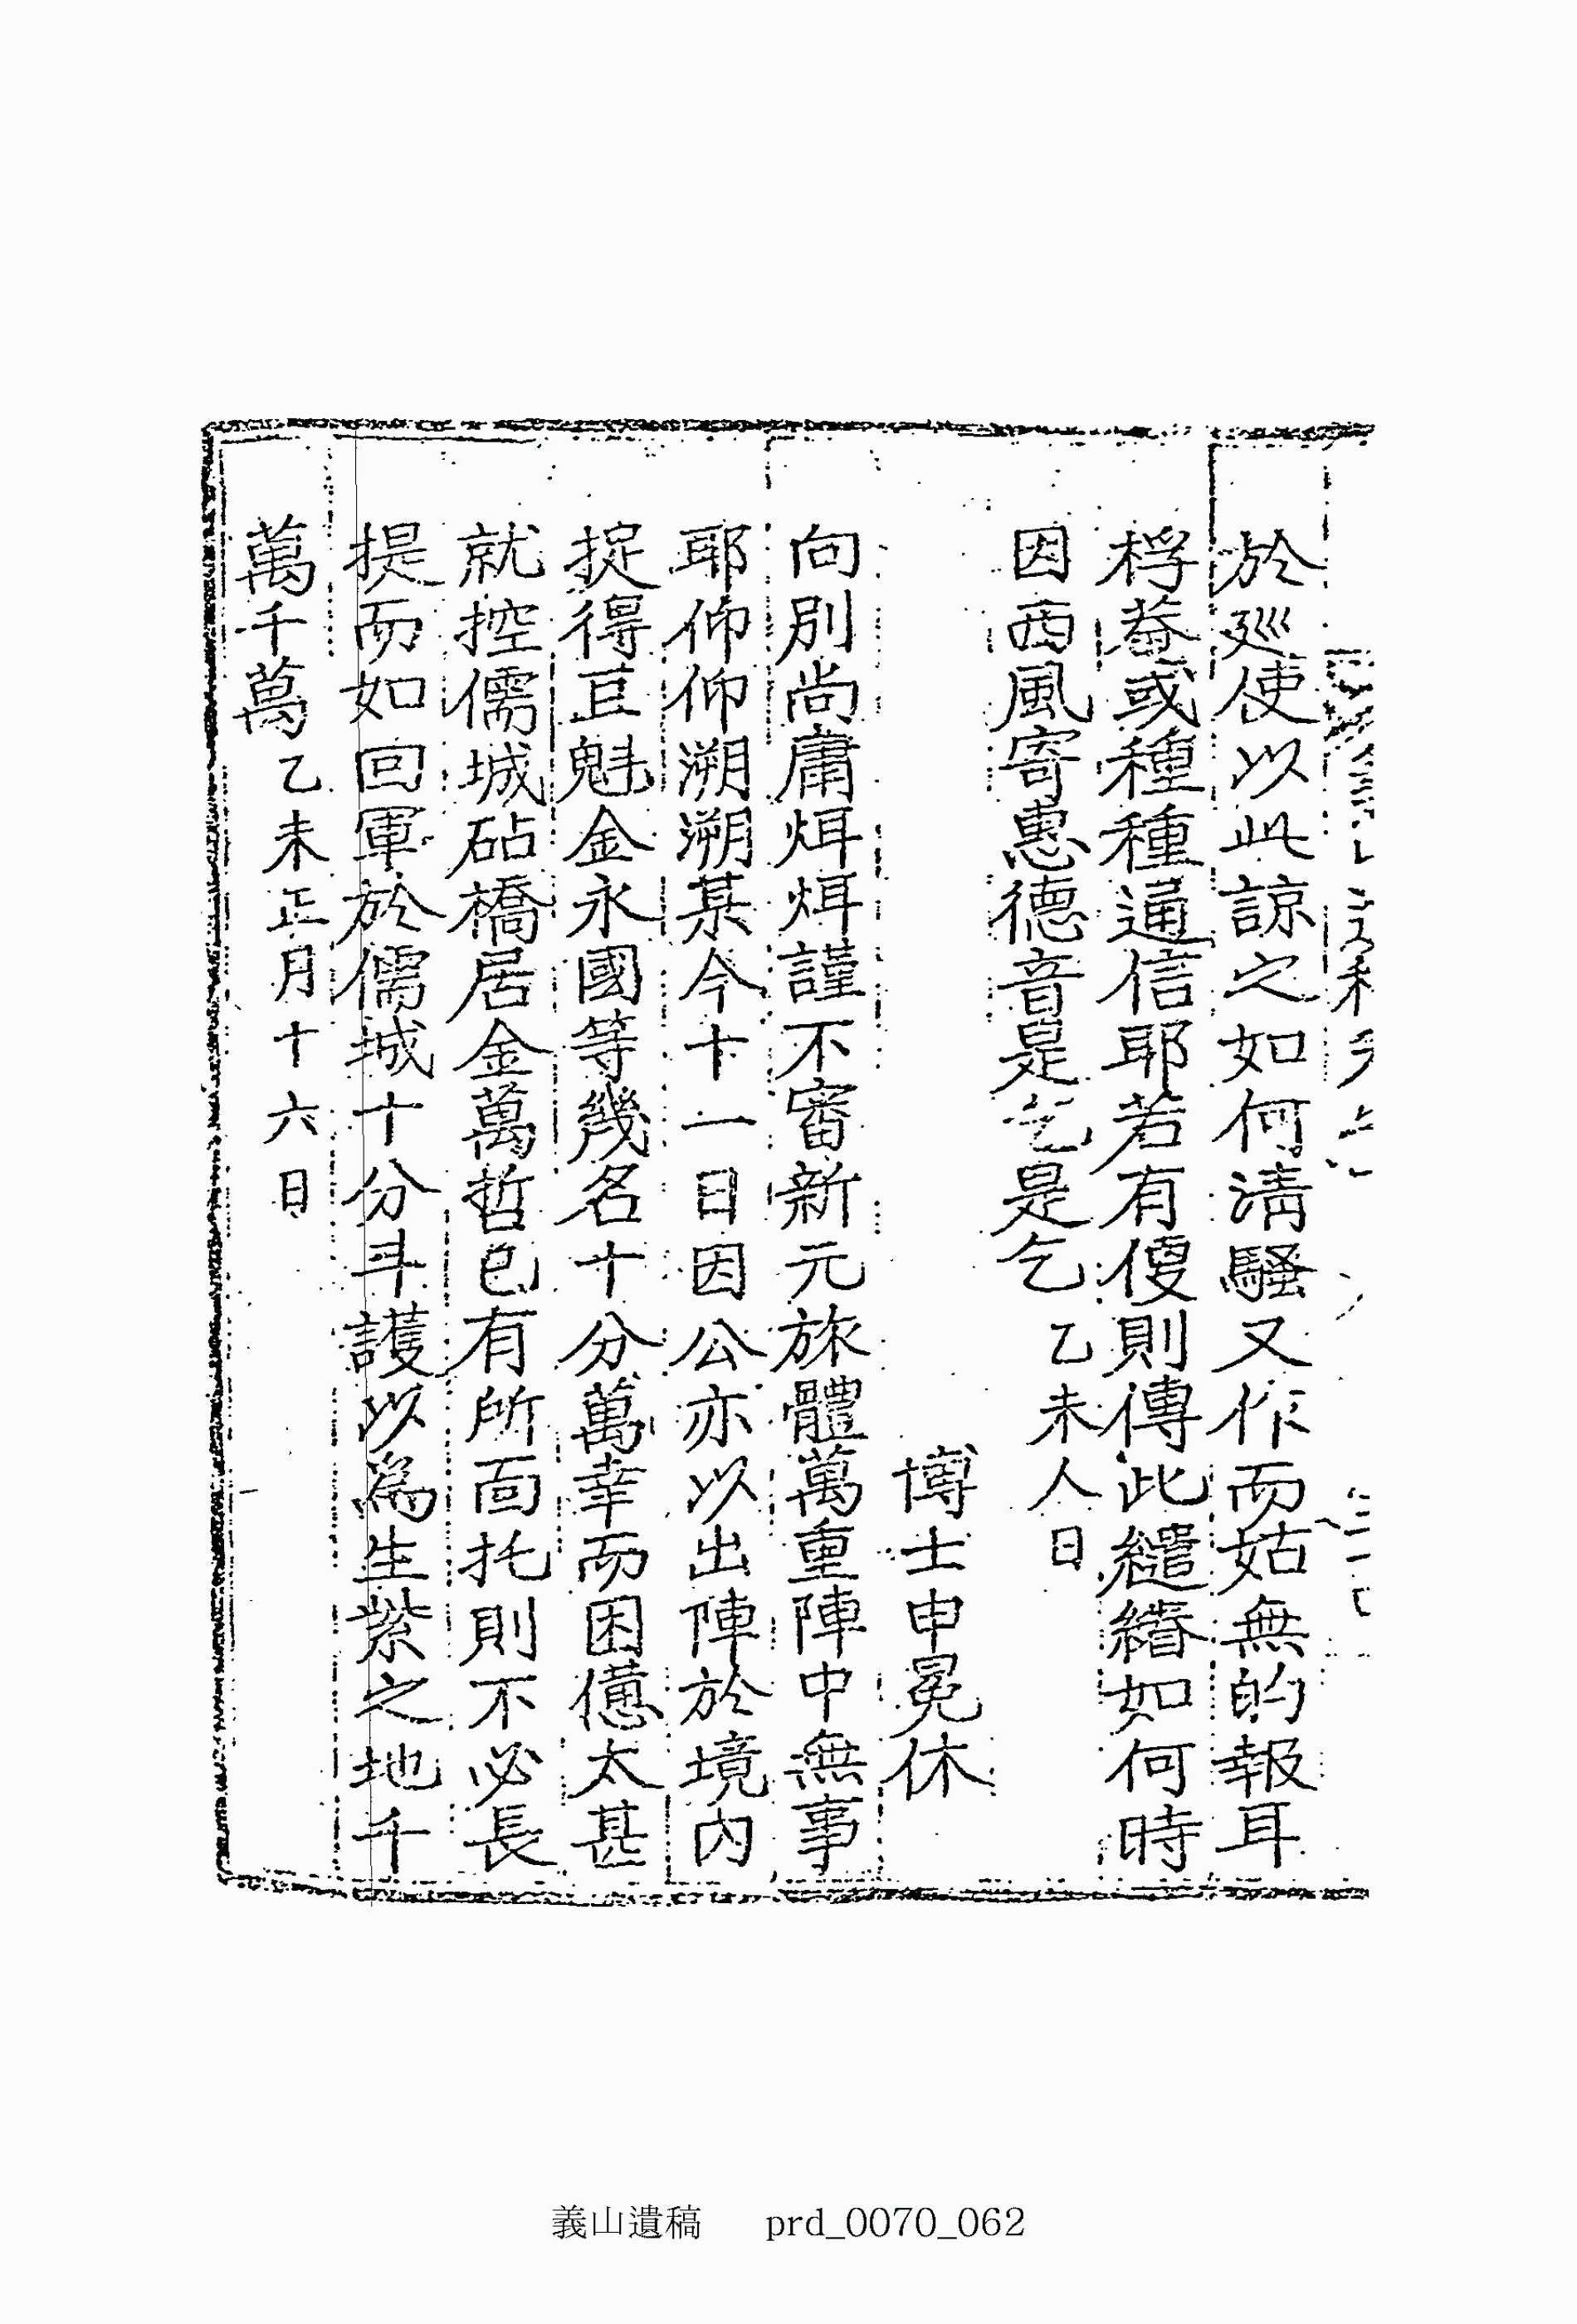 於廵使以此諒之如何淸騷又作而姑無的報耳
桴菴或種種通信耶若有便則傳此繾綣如何時
因西風寄惠德音是乞是乞 乙未人日
博士申冕休
向別尙庸炬炬謹不審新元旅體萬重陣中無事
耶仰仰溯溯某今十一日因公亦以出陣於境內
捉得巨魁金永國等幾名十分萬幸而困憊太甚
就控儒城砧橋居金萬哲已有所面托則不必長
提而如回軍於儒城十分斗護以爲生紫之地千
萬千萬 乙未正月十六日
義山遺稿 prd_0070_062